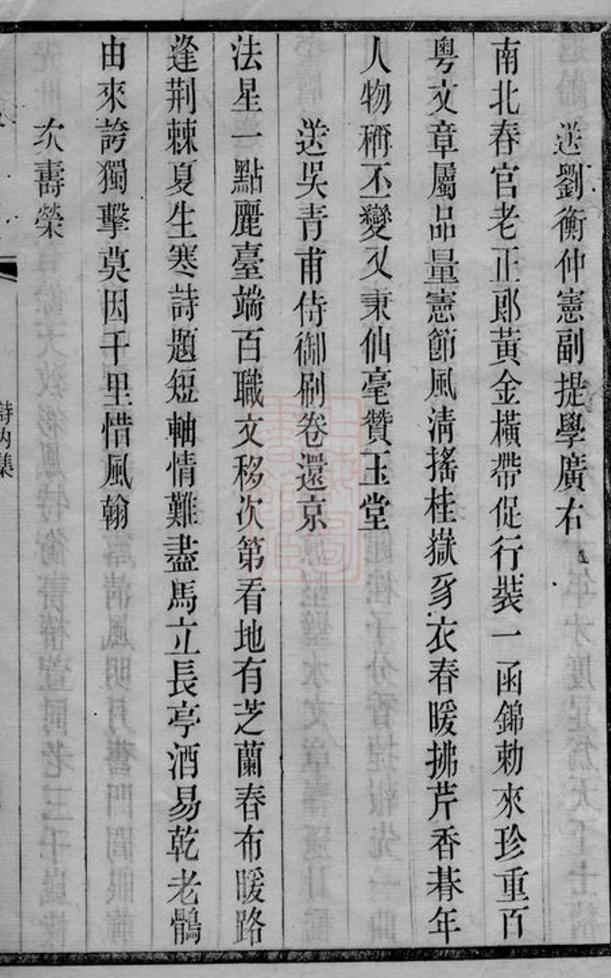 送劉衡仲憲副提學廣右
南北春官老正郎黃金橫帶促行裝一函錦勅來珍重百
粵文章屬品量憲節風清搖桂嶽豸衣春暖拂芹香朞年
人物稱丕變又秉仙毫贊玉堂
送吳青甫侍御刷卷還京
法星一點麗臺端百職文移次第看地有芝蘭春布暖路
逢荆棘夏生寒詩題短軸情難盡馬立長亭酒易乾老鶻
由來誇獨擊莫因千里惜風翰
次壽榮